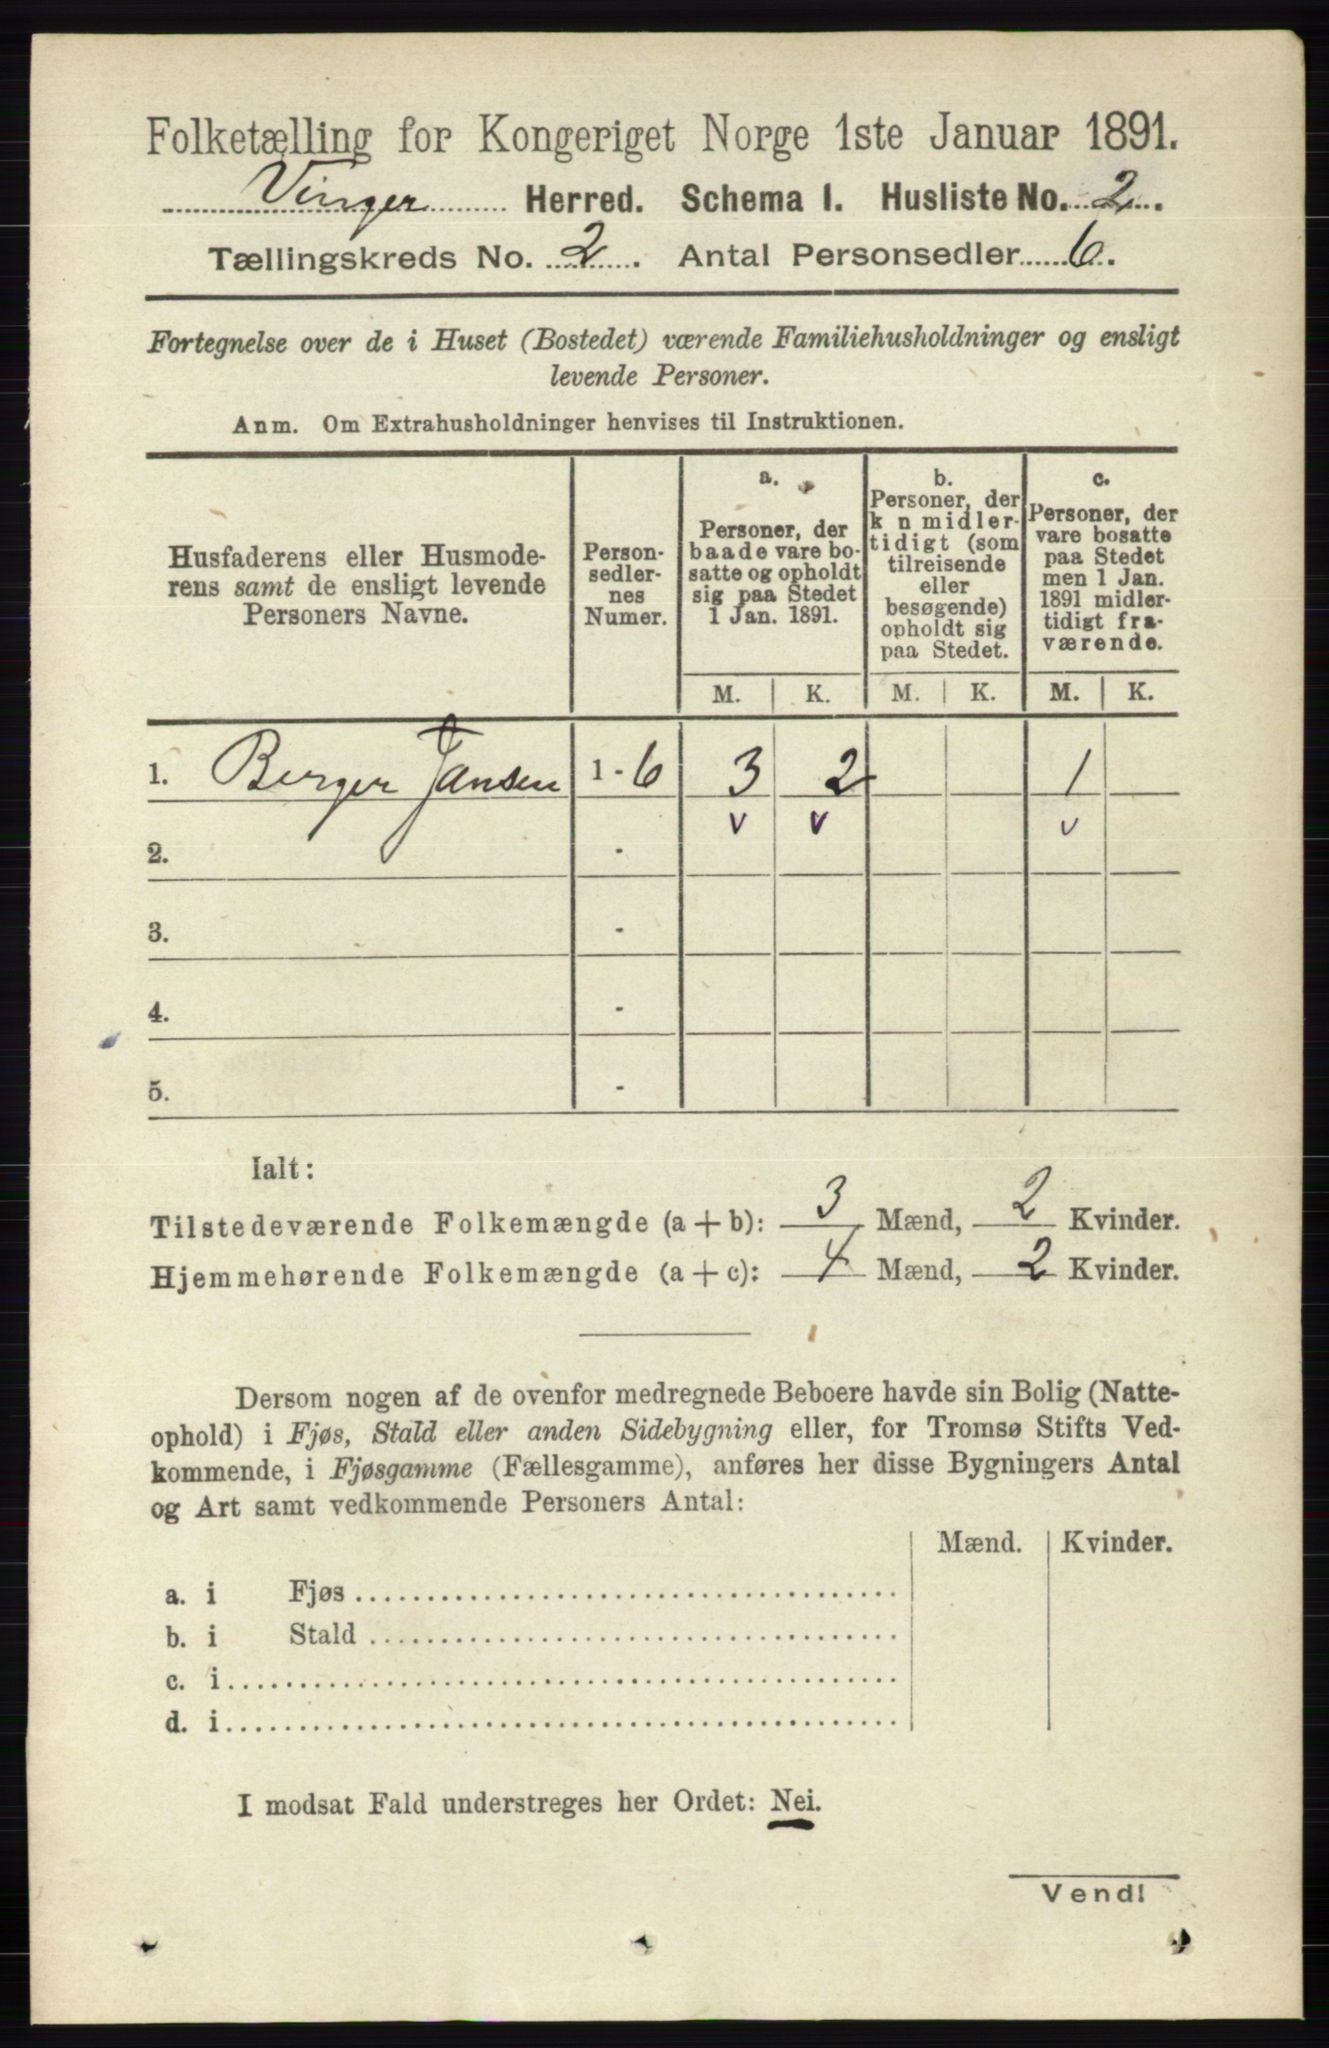 Folketælling for Kongeriget Norge 1ste Januar 1891.
Vinger Herred. Schema I. Husliste No. 2.
Tællingskreds No. 2. Antal Personsedler 6.
Fortegnelse over de i Huset (Bostedet) værende Familiehusholdninger og ensligt
levende Personer.
Anm. Om Extrahusholdninger henvises til Instruktionen.
Husfaderens eller Husmode-
rens samt de ensligt levende
Personers Navne.
Person-
sedler-
nes
Numer.
a.
Personer, der
baade vare bo-
satte og opholdt
sig paa Stedet
1 Jan. 1891.
b.
Personer, der
k n midler-
tidigt (som
tilreisende
eller
besøgende)
opholdt sig
paa Stedet.
c.
Personer, der
vare bosatte
paa Stedet
men 1 Jan.
1891 midler-
tidigt fra-
værende.
M. K. M. K. M. K.
1. Berger Jansen 1 - 6 3 2 1
v v v
2. -
3. -
4. -
5. -
Ialt:
Tilstedeværende Folkemængde (a + b): 3 Mænd, 2 Kvinder.
Hjemmehørende Folkemængde (a + c): 4 Mænd, 2 Kvinder.
Dersom nogen af de ovenfor medregnede Beboere havde sin Bolig (Natte-
ophold) i Fjøs, Stald eller anden Sidebygning eller, for Tromsø Stifts Ved-
kommende, i Fjøsgamme (Fællesgamme), anføres her disse Bygningers Antal
og Art samt vedkommende Personers Antal:
Mænd. Kvinder.
a. i Fjøs
b. i Stald
c. i
d. i
I modsat Fald understreges her Ordet: Nei.
Vend!